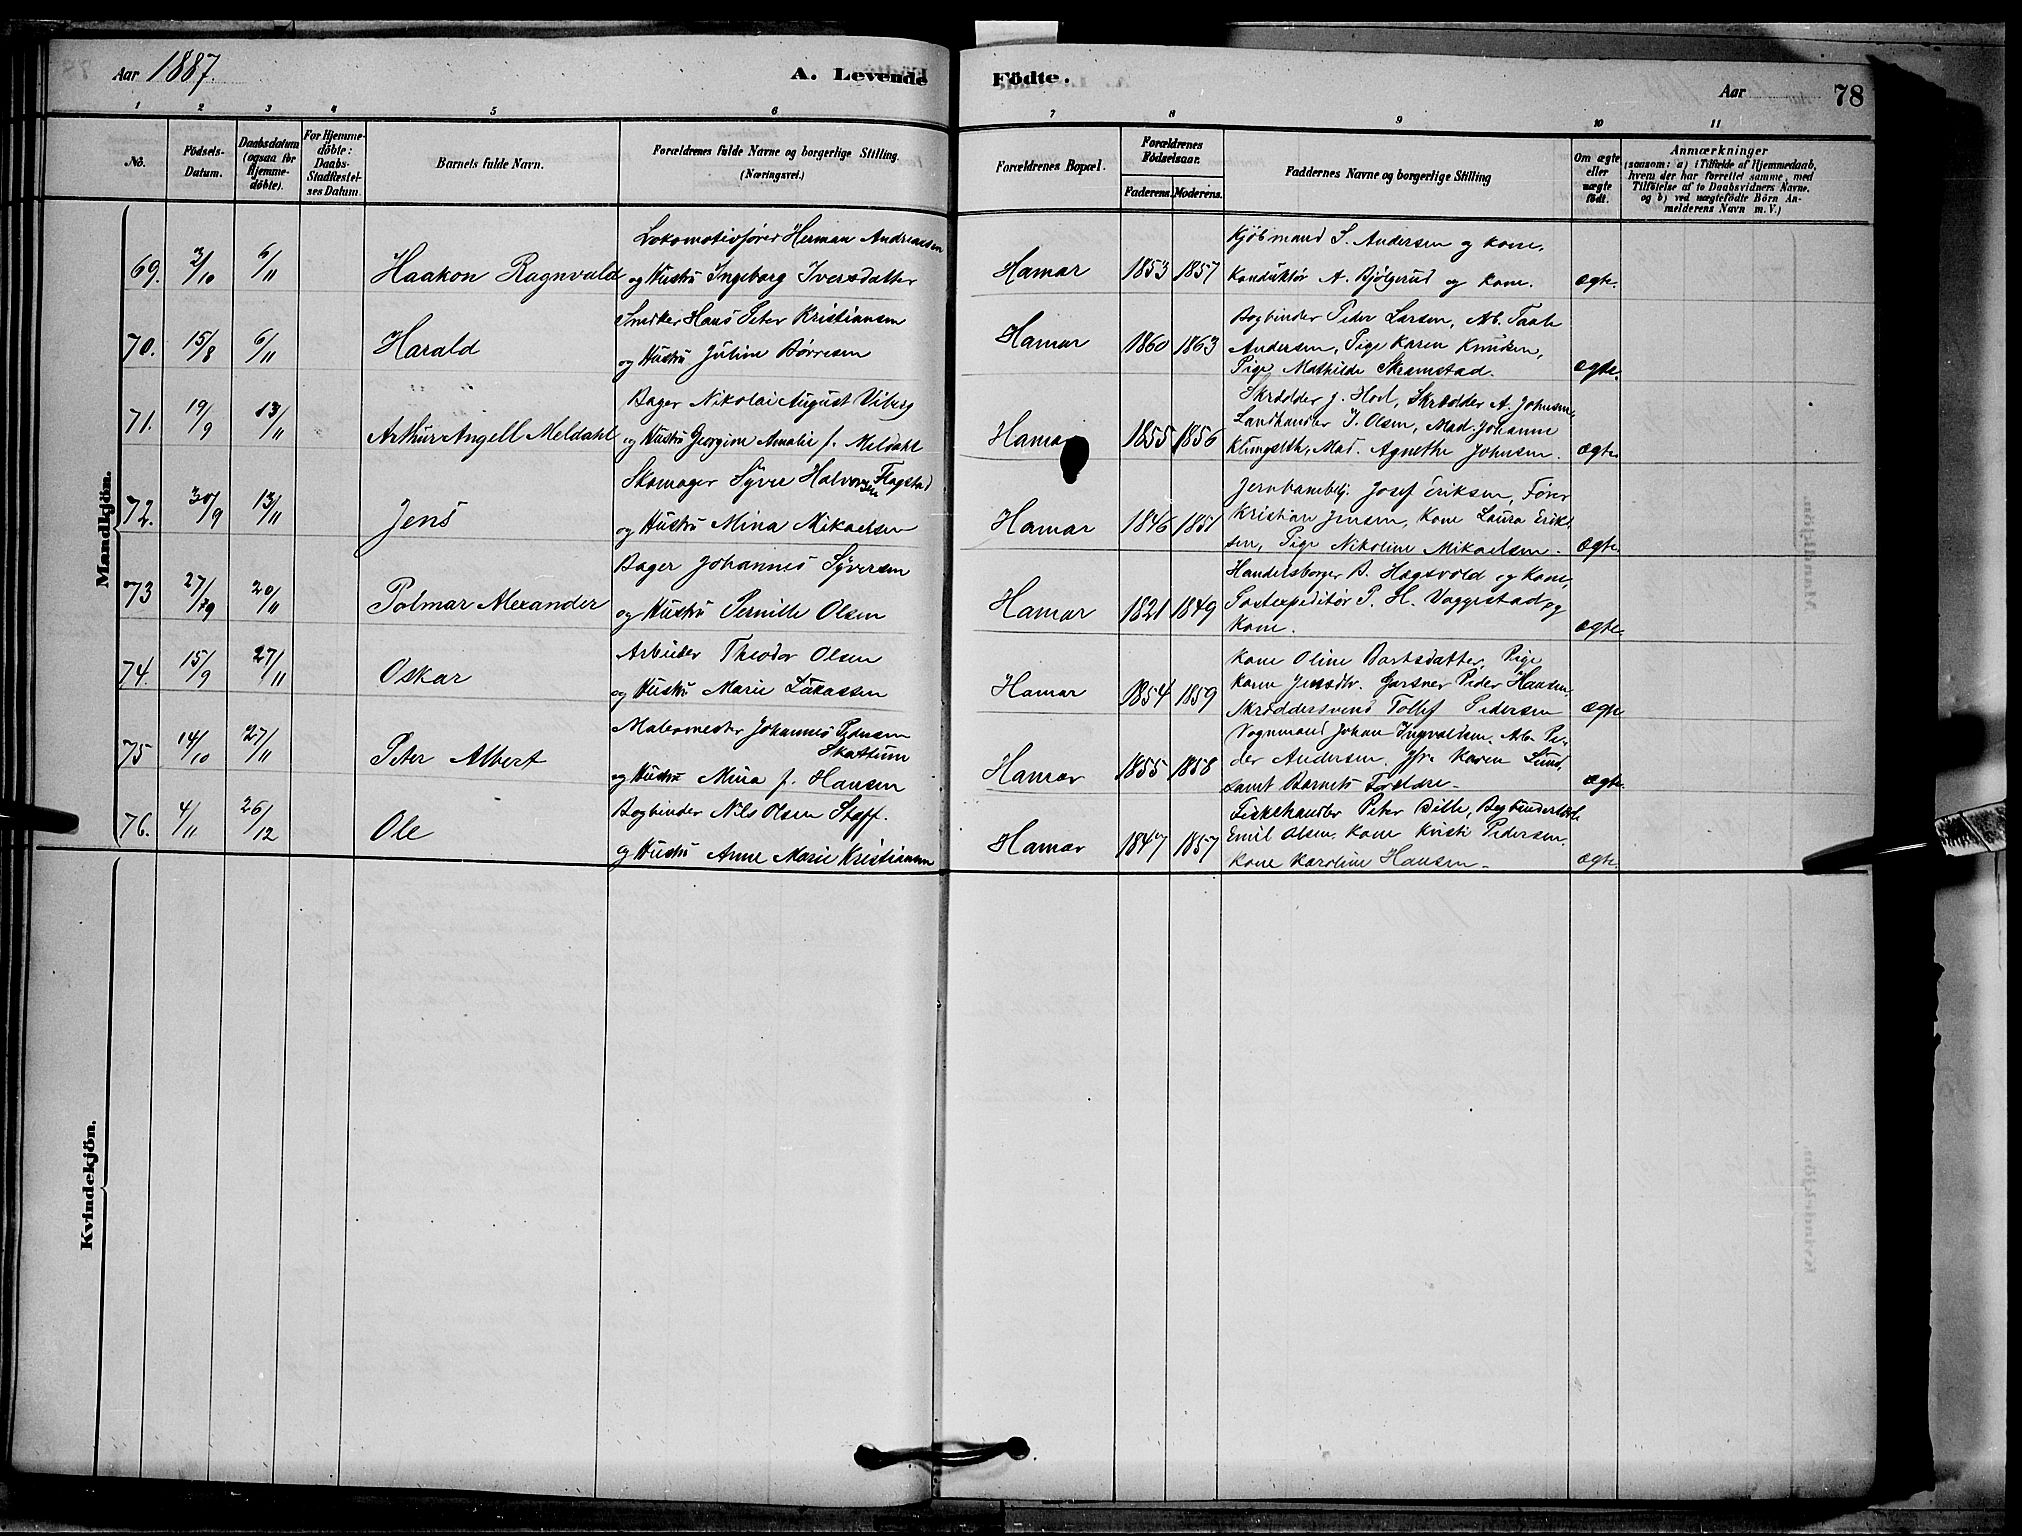 Aar 1887. A. Levende Födte. Aar 78
1 2 3 4 5 6 7 8 9 10 11
No.
Födsels-Datum.
Daabsdatum (ogsaa for Hjemme-döbte).
For Hjemme-döbte: Daabs-Stadfæstel-ses Datum.
Barnets fulde Navn.
Forældrenes fulde Navne og borgerlige Stilling.
(Næringsvei.)
Forældrenes Bopæl.
Forældrenes Födselsaar.
Faderens. Moderens.
Faddernes Navne og borgerlige Stilling
Om ægte eller uægte født.
Anmærkninger
(saasom: a) i Tilfælde af Hjemmedaab,
hvem der har forrettet samme, med
Tilföielse af to Daabsvidners Navne.
og b) ved uægtefödte Börn An-
melderens Navn m. V.)
Mandkjön.
69. 3/10 6/11 Haakon Ragnvald
Lokomotivfører Herman Andreassen
og Hustru Ingeborg Iversdatter
Hamar 1853 1857
Kjøbmand S. Andersen og Kone,
Konduktør A. Bjølgerud og Kone. ægte.
70. 15/8 6/11 Harald
Snedker Hans Peter Kristiansen
og Hustru Juline Børresen
Hamar 1860 1863
Bogbinder Peder Larsen, Ab.
Andersen, Pige Karen Knudsen,
Pige Mathilde Skramstad. ægte.
71. 19/9 13/11 Arthur Angell Meldahl
Bager Nikolai August Viberg
og Hustru Georgine Amalie f. Meldahl
Hamar 1855 1856
Skrædder J. Hoel, Skrædder A. Johnsen,
Landhandler J. Olsen, Mad. Johanne
Mad. Agnethe Johnsen. ægte.
72. 30/9 13/11 Jens
Skomager Syver Halvorsen Flagstad
og Hustru Mina Mikaelsen
Hamar 1846 1851
Jernbanebtj. Josef Eriksen, Fører
Kristian Jensen, Kone Laura Erik-
sen, Pige Nikoline Mikaelsen. ægte.
73 27/9 20/11 Polmar Alexander
Bager Johannes Syversen
og Hustru Pernille Olsen
Hamar 1821 1849
Handelsborger B. Hagsvold og Kone,
Postexpeditør P. H. Vaggestad og
Kone. ægte.
74. 15/9 27/11 Oskar
Arbeider Theodor Olsen
og Hustru Marie Lukassen
Hamar 1854 1859
Kone Oline Bartsdatter, Pige
Karen Jensdtr. Garsner Peder Hansen
Skræddersvend Tollef Pedersen ægte
75 14/10 27/11 Peter Albert
Malermester Johannes Pedersen
Skattum
og Hustru Mina f. Hansen
Hamar 1855 1858
Vognmand Johan Ingvaldsen, Arb. Pe-
der Andersen, Jfr. Karen Lund,
samt Barnets Forældre. ægte.
76. 4/11 26/12 Ole
Bogbinder Nils Olsen Staff.
og Hustru Anne Marie Kristiansen
Hamar 1847 1857
Fiskehandler Peter Dille,
Emil Olsen, Kone Kristi Pedersen,
Kone Karoline Hansen. ægte.
Kvindekjön.